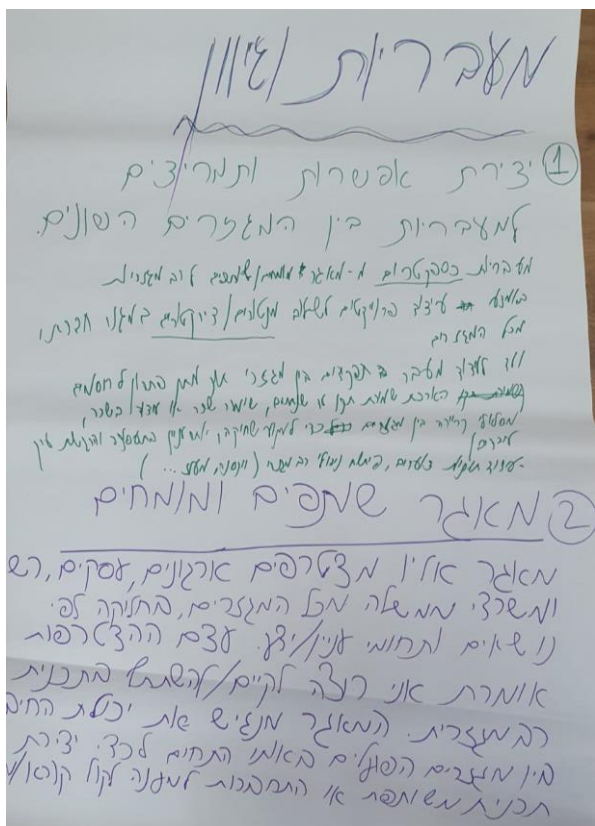 מעבריות וגיוון
1 יצירת אפשרות ותמריצים
למעבריות בין המגזרים השונים.
מעבריות כספקטרום מ-מאגר מומחים/שותפים לרב מגזריות
באמצע עיצוב פרויקטים לשילוב מנטורים/דירקטורים במגזר חברתי,
מכל המגזרים
ועד לעידוד מעבר בתפקידים בין מגזרי תוך מתן פתרון לחסמים
הארכת שמירת תקן, שימור שכר או מדע בשכר,
מסלולי קריירה בין מגזריים כדי למנוע שחיקה בתעסוקה
עידוד צעירים, פיתוח ניהולי רב מגזרי
2 מאגר שותפים ומומחים
מאגר אליו מצטרפים ארגונים, עסקים, רש
ומשרדי ממשלה מכל המגזרים, בחלוקה לפי
נושאים ותחומי עניין/ידע. עצם ההצטרפות
אומרת אני רוצה לקיים/להשתתף בתכנית
רב מגזרית. המאגר מנגיש את יכולת החיב
בין מגזרים הפועלים באותו התחום לכדי יצירת
תכנית משותפת או התחברות למענה לקול קורא/